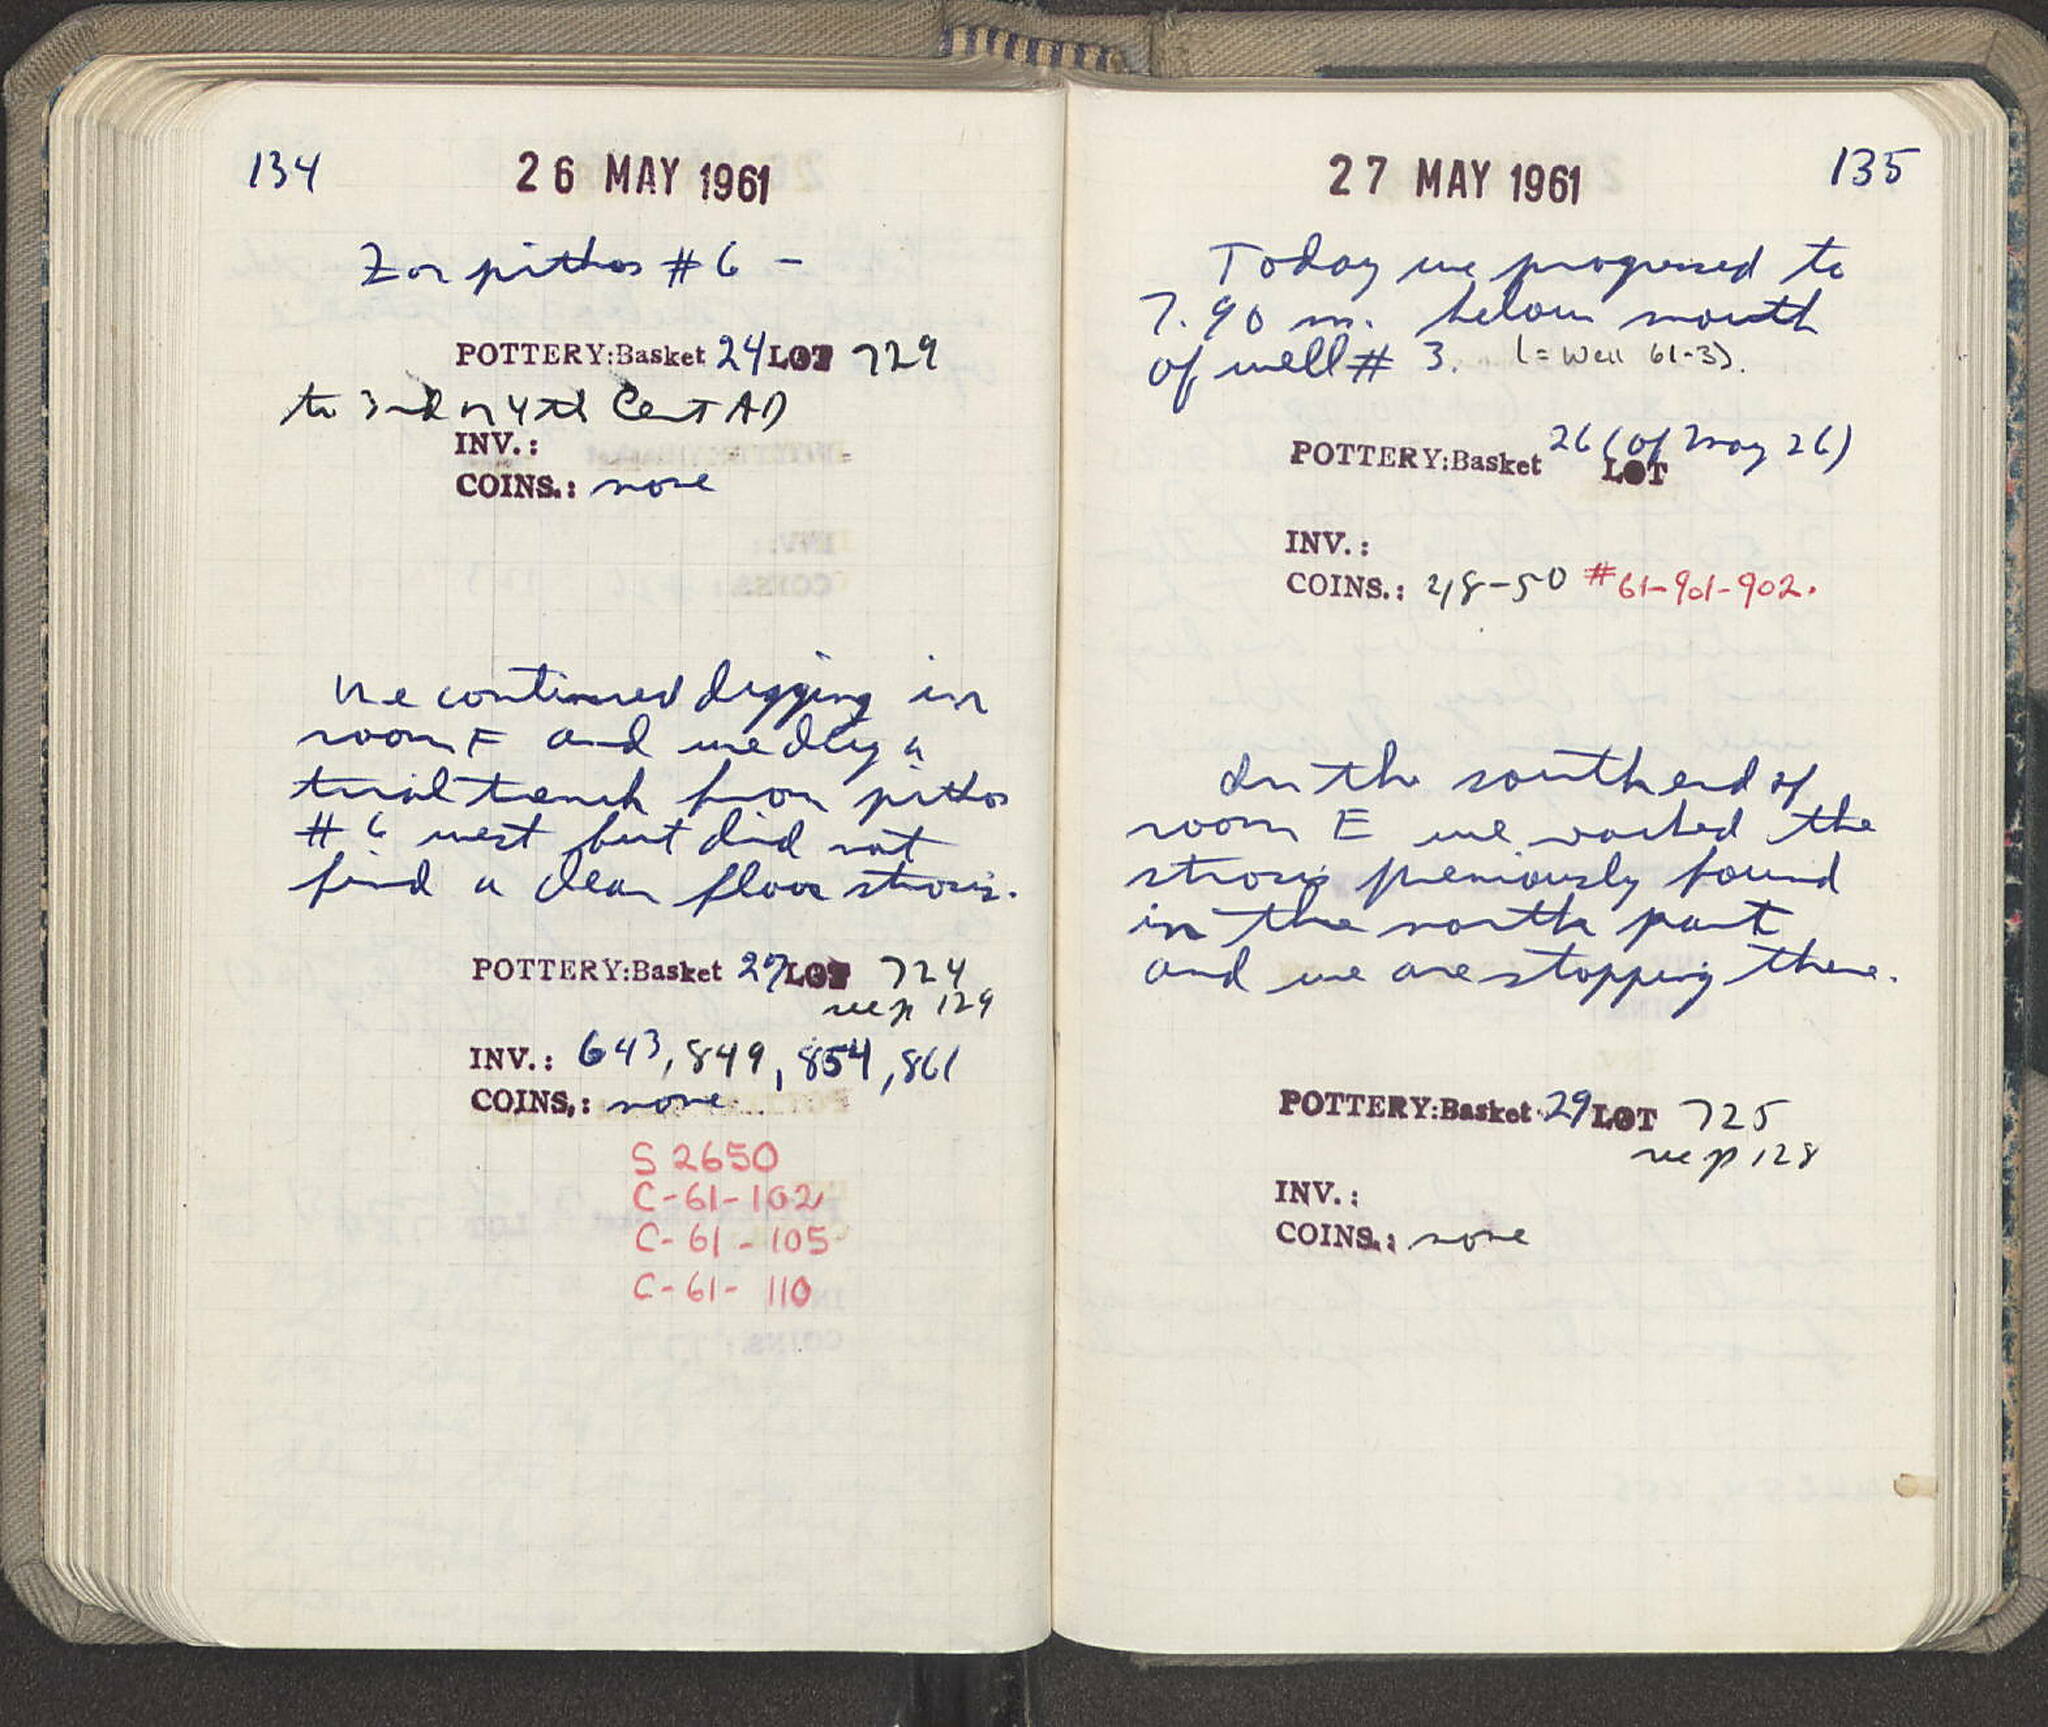 134
26 MAY 1961
For pithos #6 -
POTTERY:Basket 24 LOT 729
to 3rd or 4th Cent AD
INV.:
COINS.: none
We continued digging in
room F and we dug a
trial trench from pithos
#6 west but did not
find a clear floor strosis.
POTTERY:Basket 27 LOT 724
see p 129
INV.: 643, 849, 854, 861
COINS.: none
S 2650
C-61-102
C-61-105
C-61-110
27 MAY 1961
135
Today we progressed to
7.90 m. below mouth
of well # 3. (= Well 61-3).
POTTERY:Basket 26 (of May 26)
LOT
INV.:
COINS.: 48-50 #61-901-902.
In the south end of
room E we reached the
strosis previously found
in the north part
and we are stopping there.
POTTERY:Basket 29 LOT 725
see p 128
INV.:
COINS.: none